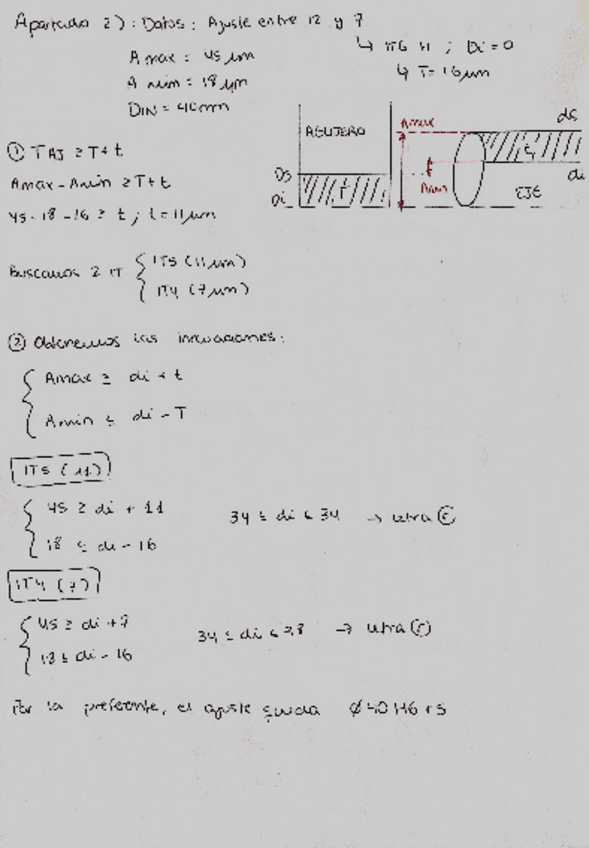 Apartado 2): Datos: Ajuste entre 12 y 7
↳ IT6 H ; Di = 0
↳ T = 16 µm
Amax = 45 µm
Amin = 18 µm
DIN = 40mm
AGUJERO
Ds
Di
T
Amax
Amin
ds
t
di
EJE
① TAJ ≥ T + t
Amax - Amin ≥ T + t
45 - 18 - 16 ≥ t ; t = 11 µm
Buscamos 2 IT { IT5 (11 µm)
IT4 (7 µm)
② Obtenemos las inecuaciones:
Amax ≥ di + t
Amin ≤ di - T
IT5 (11)
45 ≥ di + 11
18 ≤ di - 16
34 ≤ di ≤ 34 → letra ⓡ
IT4 (7)
45 ≥ di + 7
18 ≤ di - 16
34 ≤ di ≤ 38 → letra ⓡ
Por la preferente, el ajuste queda ∅ 40 H6 r5